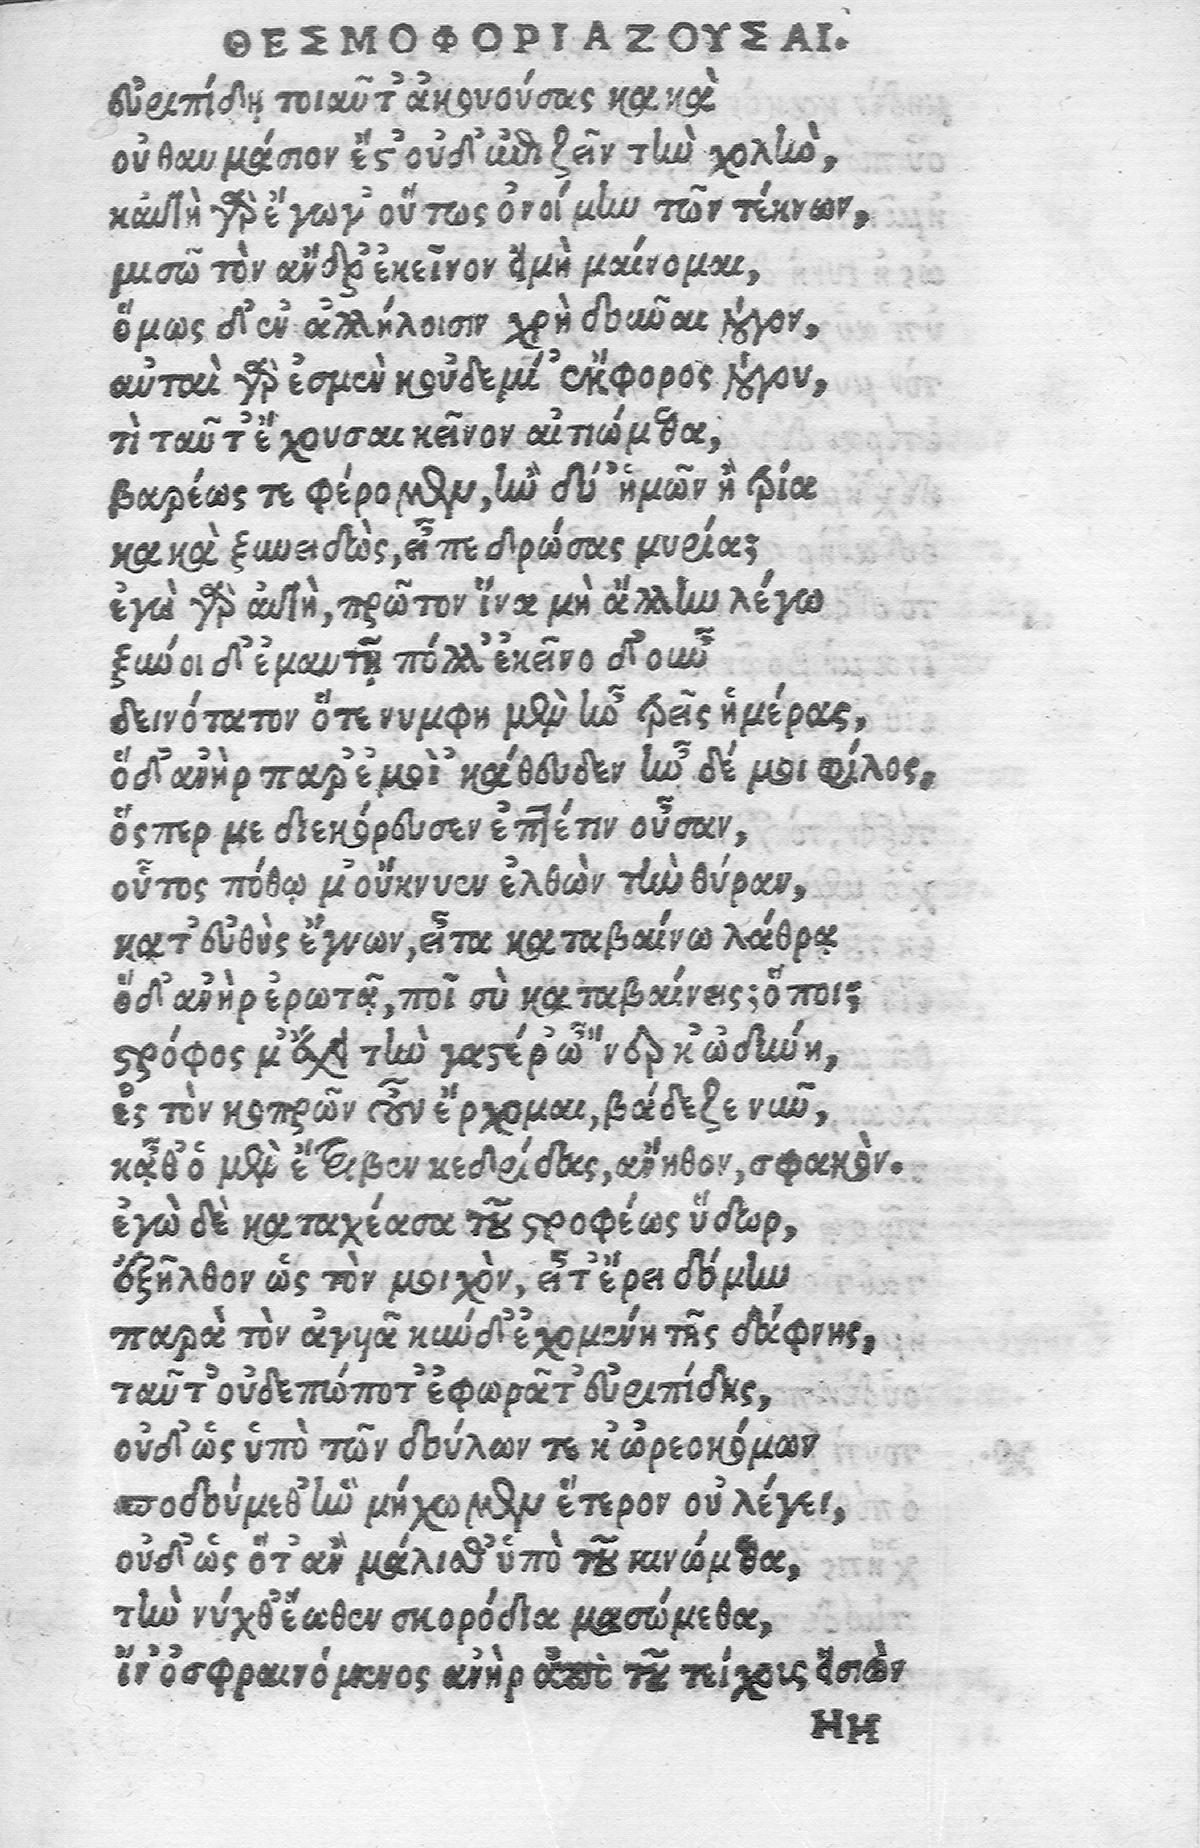 ΘΕΣΜΟΦΟΡΙΑΖΟΥΣΑΙ.
εὐριπίδῃ τοιαῦτ' ἀκουούσας κακὰ
οὐ θαυμάσιον ἔς' οὐδ' ἐπιζεῖν τὴν χολὴν,
καὐτὴ γὰρ ἔγωγ' οὕτως ὀνοίμην τῶν τέκνων,
μισῶ τὸν ἄνδρ' ἐκεῖνον εἰ μὴ μαίνομαι,
ὅμως δ' ἐν ἀλλήλοισιν χρὴ δοῦναι λόγον,
αὐταὶ γάρ ἐσμεν κοὐδεμί' ἔκφορος λόγου,
τί ταῦτ' ἔχουσαι κεῖνον αἰτιώμεθα,
βαρέως τε φέρομεν, ἢν δύ' ἡμῶν ἢ τρία
κακὰ ξυνειδὼς, εἶπε δρώσας μυρία;
ἐγὼ γὰρ αὐτὴ, πρῶτον ἵνα μὴ ἄλλην λέγω
ξύνοιδ' ἐμαυτῇ πόλλ' ἐκεῖνο δ' οὖν
δεινότατον ὅτε νυμφη μὲν ἦν τρεῖς ἡμέρας,
ὅδ' ἀνὴρ παρ' ἐμοὶ 'κάθευδεν ἦν δέ μοι φίλος,
ὅςπερ με διεκόρευσεν ἑπτέτιν οὖσαν,
οὗτος πόθῳ μ' οὔκνυεν ἐλθὼν τὴν θύραν,
κατ' εὐθὺς ἔγνων, εἶτα καταβαίνω λάθρᾳ
ὅδ' ἀνὴρ ἐρωτᾷ, ποῖ σὺ καταβαίνεις; ὅποι;
ςρόφος μ' ἔχει τὴν γαςέρ' ὦ 'νερ κ' ὠδύνη,
ἐς τὸν κοπρῶν οὖν ἔρχομαι, βάδεζε νῦν,
κᾆθ' ὁ μὲν ἔτριβεν κεδρίδας, ἄνηθον, σφακὸν.
ἐγὼ δὲ καταχέασα τοῦ ςροφέως ὕδωρ,
ἐξῆλθον ὡς τὸν μοιχὸν, εἶτ' ἔρειδόμην
παρὰ τὸν ἀγυᾶ κύνδ' ἐχομένη τῆς δάφνης,
ταῦτ' οὐδεπώποτ' ἐφωρᾶτ' εὐριπίδης,
οὐδ' ὡς ὑπὸ τῶν δούλων τε κ' ὠρεοκόμων
ποδούμεθ' ἢν μήχωμεν ἕτερον οὐ λέγει,
οὐδ' ὡς ὅτ' ἂν μάλισθ' ὑπὸ του κινώμεθα,
τὴν νύχθ' ἕωθεν σκορόδια μασώμεθα,
ἵν' ὀσφραινόμενος ἀνὴρ ἀπὸ τοῦ τείχους εἰσιὼν
ΗΗ